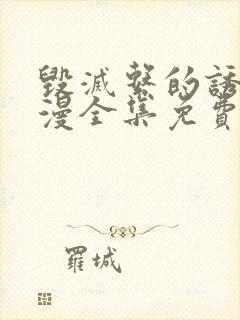 毀滅繫的誘
漫全集免費
羅城